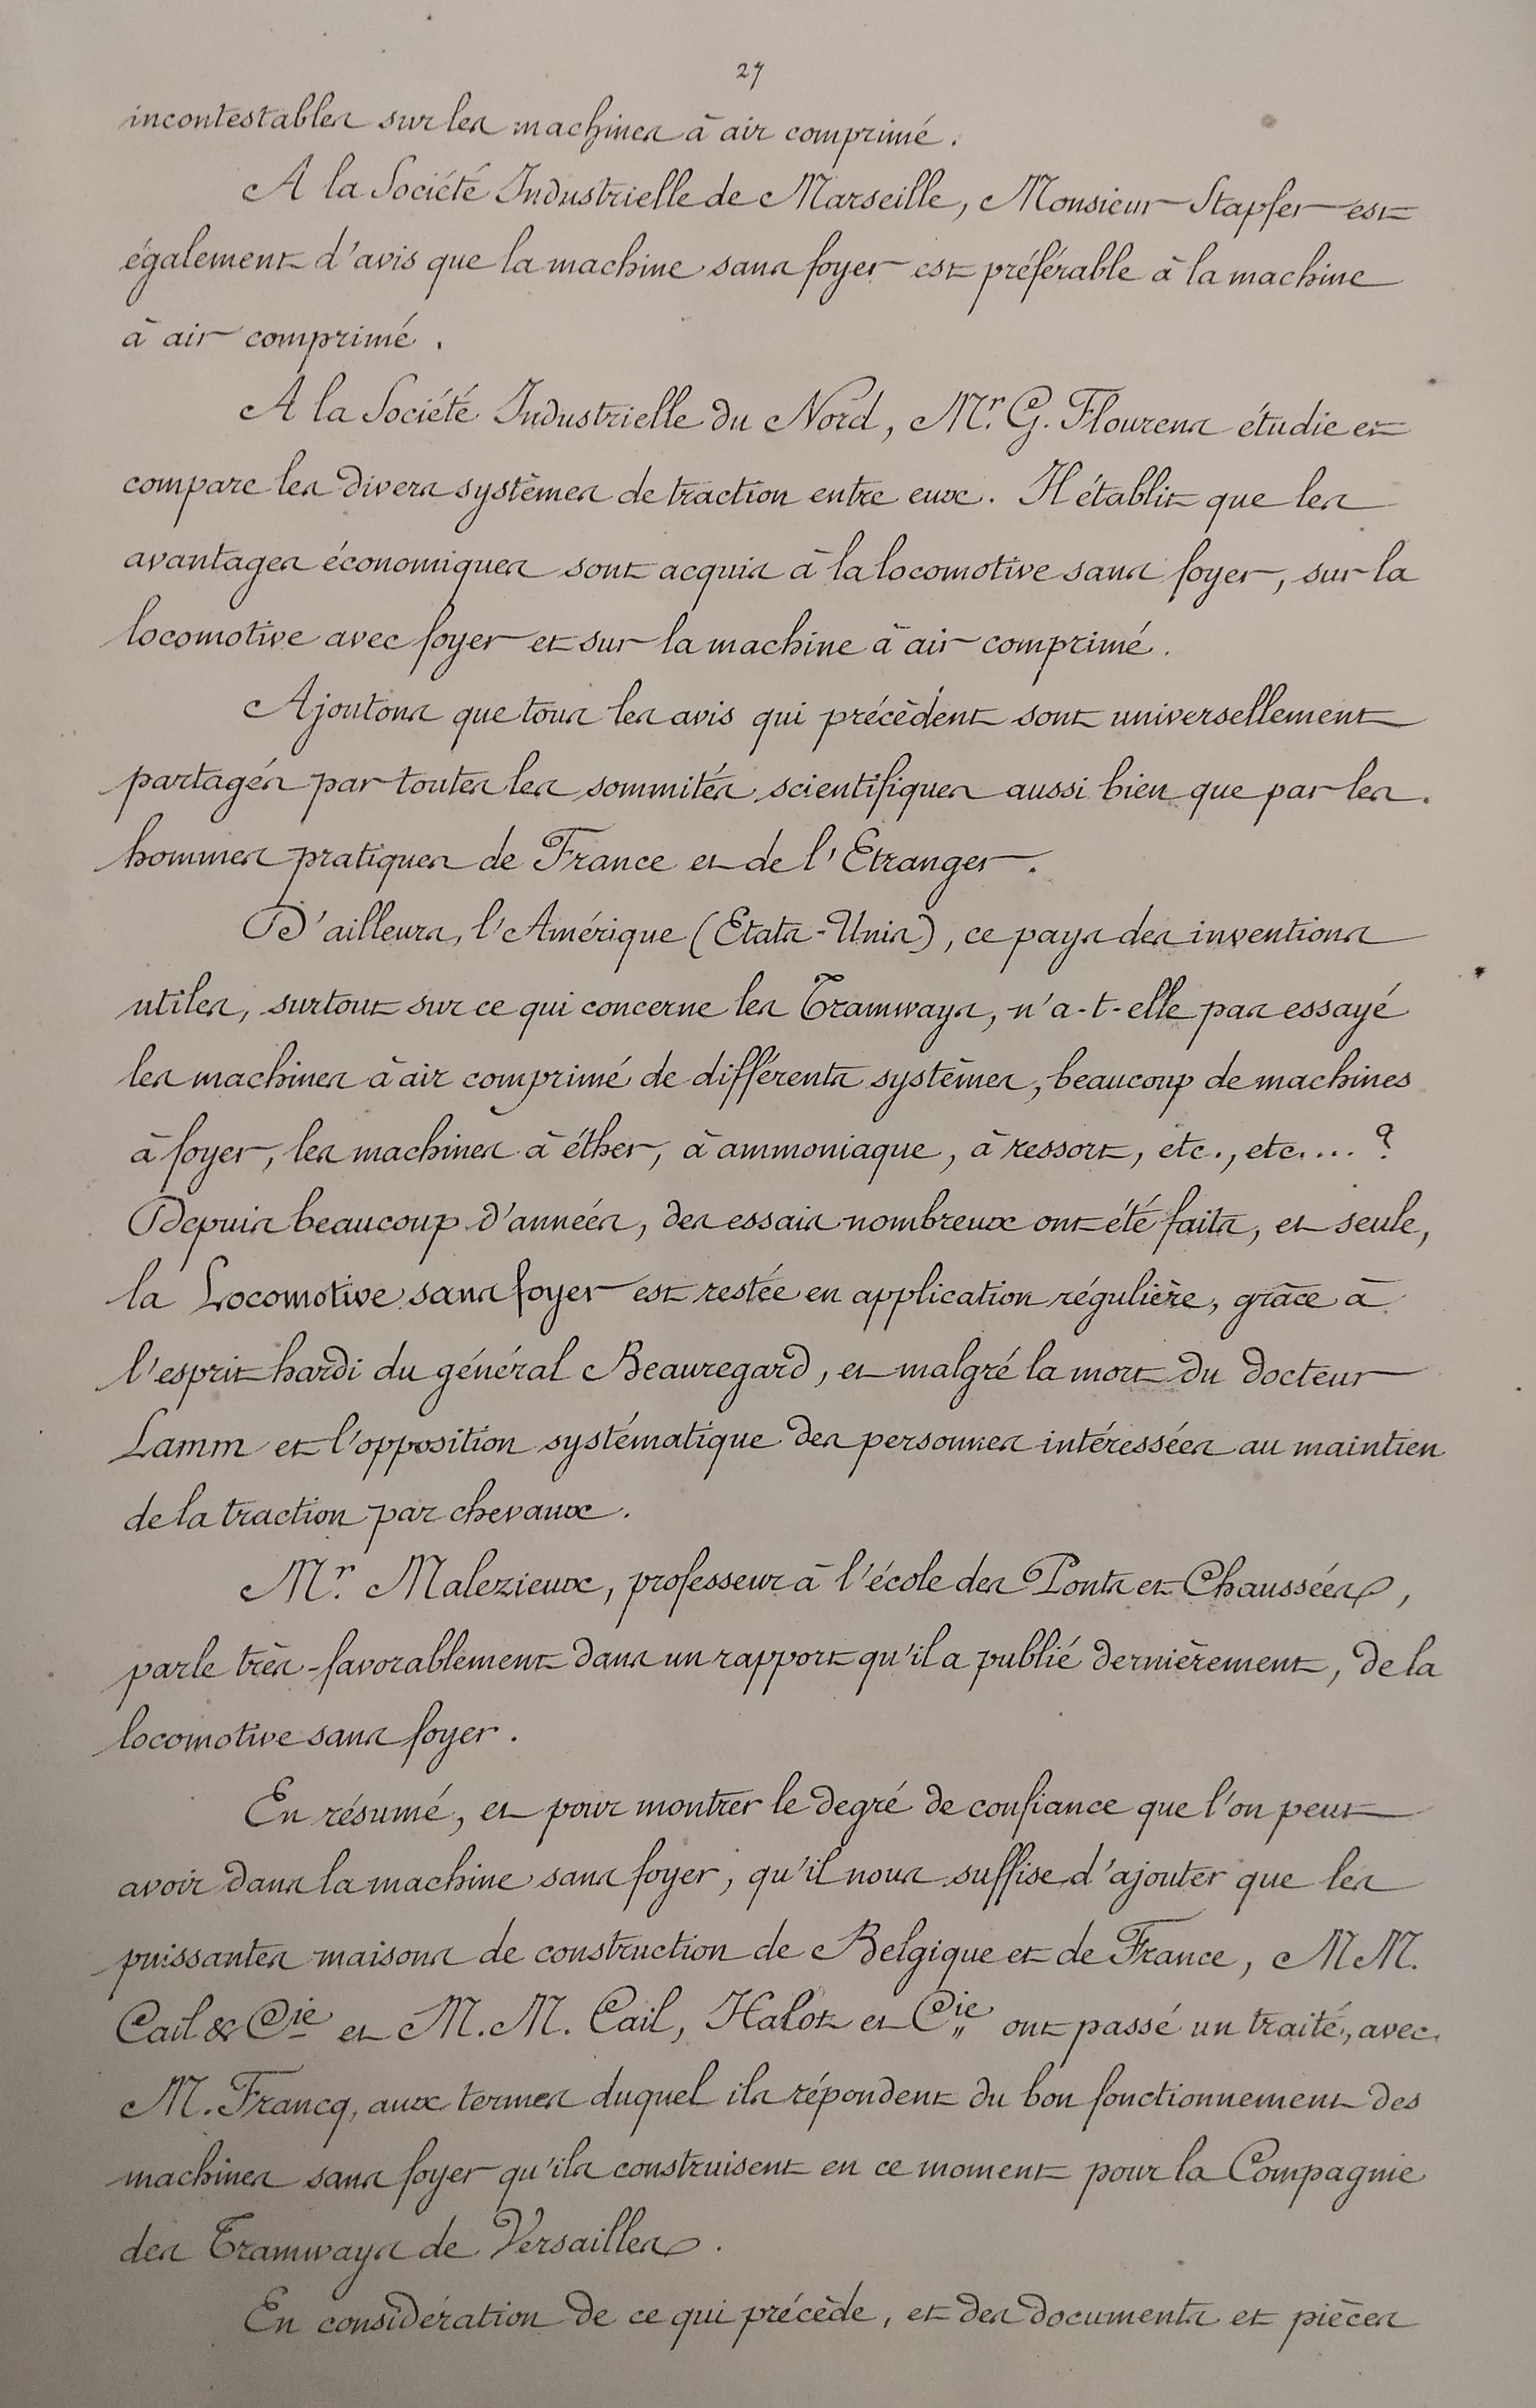 27
incontestables sur les machines à air comprimé.
A la Société Industrielle de Marseille, Monsieur Stapfer est
également d'avis que la machine sans foyer est préférable à la machine
à air comprimé.
A la Société Industrielle du Nord, Mr. G. Flourens étudie et
compare les divers systèmes de traction entre eux. Il établit que les
avantages économiques sont acquis à la locomotive sans foyer, sur la
locomotive avec foyer et sur la machine à air comprimé.
Ajoutons que tous les avis qui précèdent sont universellement
partagés par toutes les sommités scientifiques aussi bien que par les
hommes pratiques de France et de l'Etranger.
D'ailleurs, l'Amérique (Etats-Unis), ce pays des inventions
utiles, surtout sur ce qui concerne les Tramways, n'a-t-elle pas essayé
les machines à air comprimé de différents systèmes, beaucoup de machines
à foyer, les machines à éther, à ammoniaque, à ressort, etc., etc.... ?
Depuis beaucoup d'années, des essais nombreux ont été faits, et seule,
la Locomotive sans foyer est restée en application régulière, grâce à
l'esprit hardi du général Beauregard, et malgré la mort du docteur
Lamm et l'opposition systématique des personnes intéressées au maintien
de la traction par chevaux.
Mr. Malezieux, professeur à l'école des Ponts et Chaussées,
parle très-favorablement dans un rapport qu'il a publié dernièrement, de la
locomotive sans foyer.
En résumé, et pour montrer le degré de confiance que l'on peut
avoir dans la machine sans foyer, qu'il nous suffise d'ajouter que les
puissantes maisons de construction de Belgique et de France, MM.
Cail & Cie et M.M. Cail, Halot et Cie ont passé un traité, avec
M. Francq, aux termes duquel ils répondent du bon fonctionnement des
machines sans foyer qu'ils construisent en ce moment pour la Compagnie
des Tramways de Versailles.
En considération de ce qui précède, et des documents et pièces